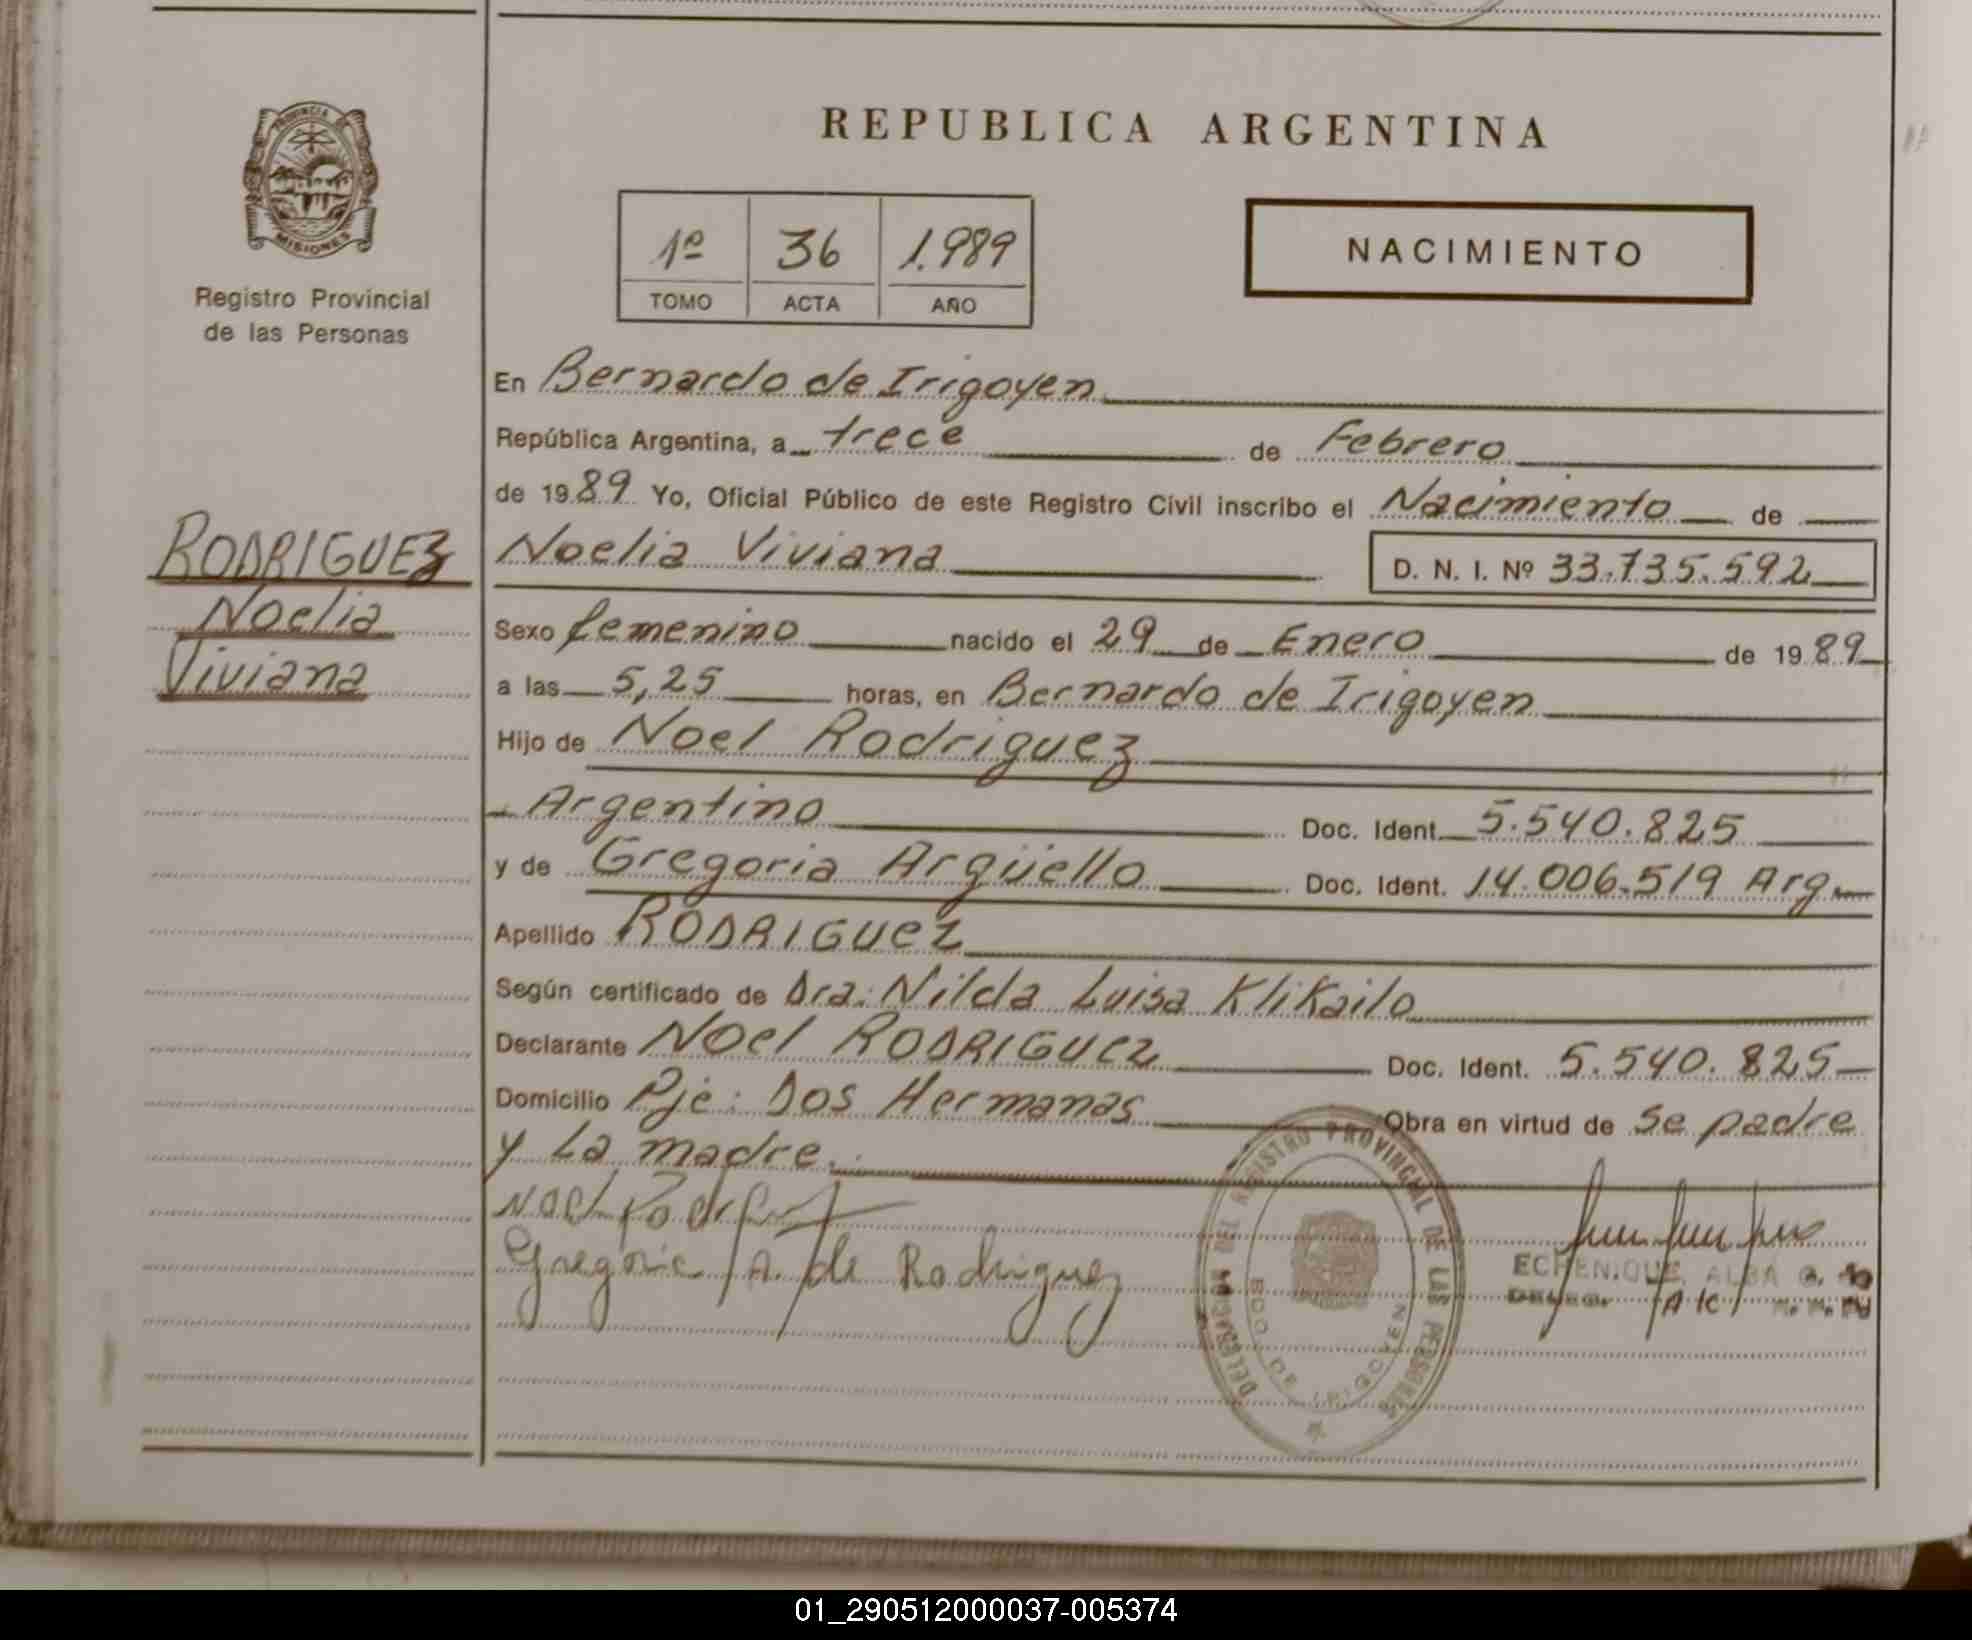 PROVINCIA DE
MISIONES
Registro Provincial
de las Personas
RODRIGUEZ
Noelia
Viviana
REPUBLICA ARGENTINA
1º 36 1.989
TOMO ACTA AÑO
NACIMIENTO
En Bernardo de Irigoyen
República Argentina, a trece de Febrero
de 1989 Yo, Oficial Público de este Registro Civil inscribo el Nacimiento de
Noelia Viviana D. N. I. Nº 33.735.592
Sexo femenino nacido el 29 de Enero de 1989
a las 5,25 horas, en Bernardo de Irigoyen
Hijo de Noel Rodriguez
Argentino Doc. Ident. 5.540.825
y de Gregoria Argüello Doc. Ident. 14.006.519 Arg.
Apellido RODRIGUEZ
Según certificado de Dra: Nilda Luisa Klikailo
Declarante NOEL RODRIGUEZ Doc. Ident. 5.540.825
Domicilio Pje: Dos Hermanas Obra en virtud de Se padre
y La madre.
Noel Rodriguez
Gregoria A. de Rodriguez
DEL REGISTRO PROVINCIAL DE LAS PERSONAS
BDO. DE IRIGOYEN
ECHENIQUE, ALBA G.
DELEG. A/C
01_290512000037-005374